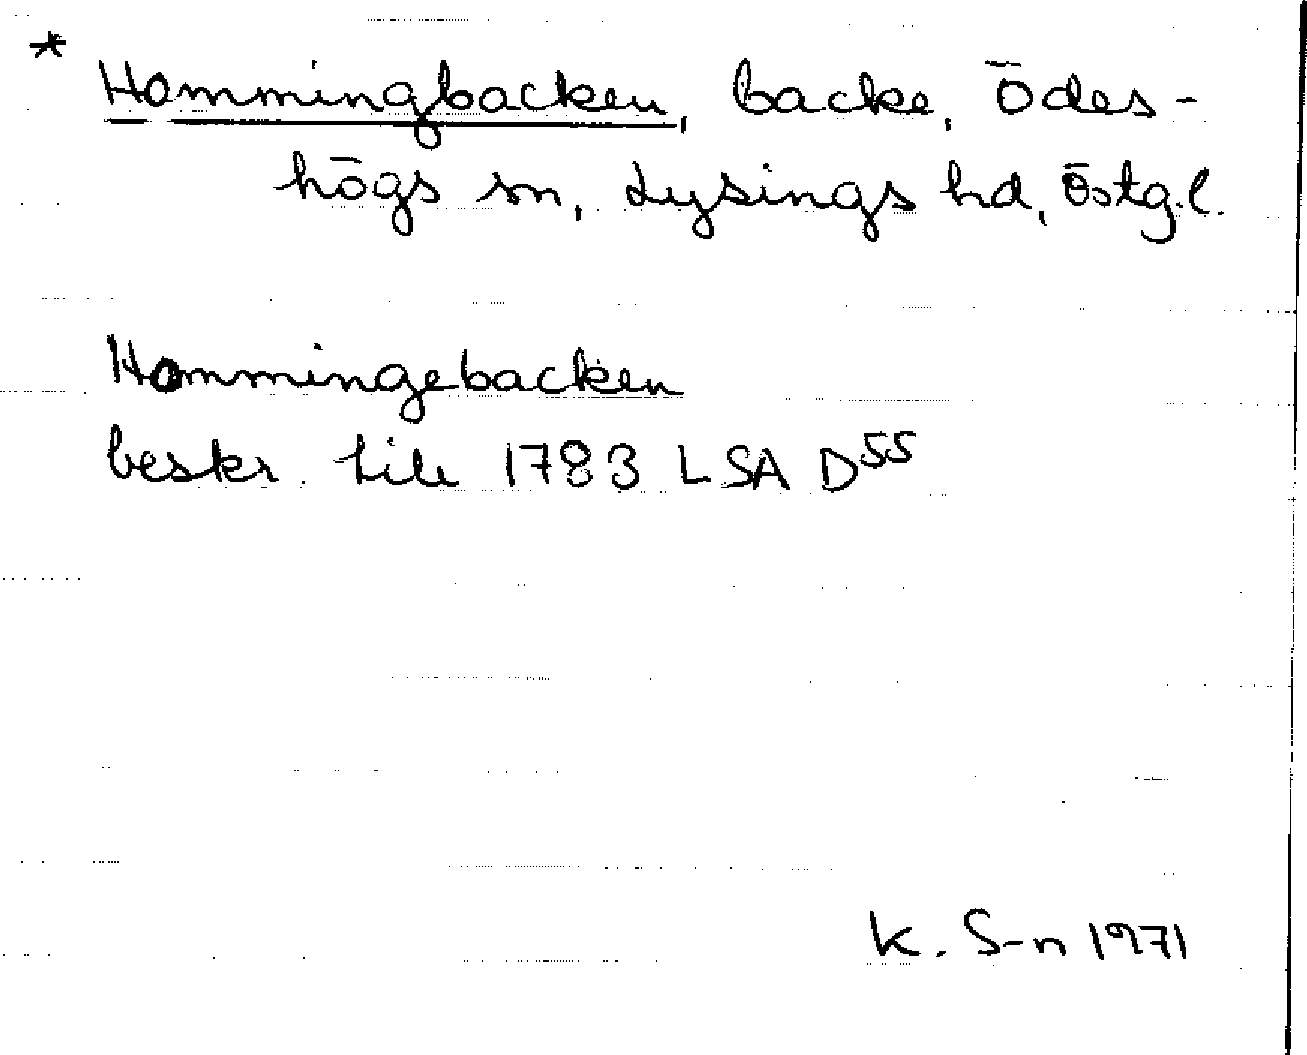 * Hommingbacken, backe, Ödes-
högs sn, Lysings hd, Östg.l.
Hommingebacken
beskr. till 1783 LSA D55
K. S-n 1971